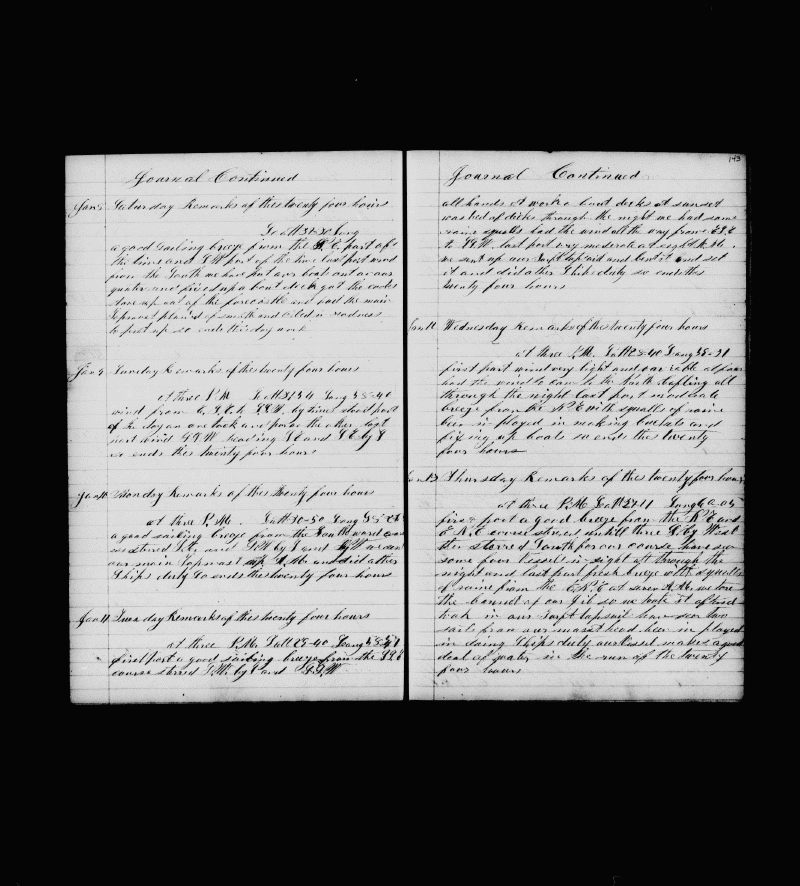 Journal Continued
Jan 8 Saturday Remarks of this twenty four hours
Latt 31-30 Long
a good sailing breeze from the S. E. part of
the time and S W part of the time last part wind
from the South we have put our boat out on our
quarter and fixed up a bout deck got the
stove up out of the forecastle and had the main
planed smooth and oiled in readness
to put up so ends this day and
Jan 9 Sunday Remarks of this twenty four hours
at three P.M. Latt 31-34 Long 55-40
wind from E. S. E. to S.S.W. by times about part
of the day on one tack and part on the other last
part wind S S W heading S E and S E by S
so ends this twenty four hours
Jan 10 Monday Remarks of this twenty four hours
at three P. M. Latt 30-50 Long 55-
a good sailing breeze from the Southward and
we stered S.E. and S.W by S and we sent
our main Top mast up P. M. and did other
Ships duty So ends this twenty four hours
Jan 11 Tuesday Remarks of this twenty four hours
at three P.M. Latt 29-40 Long 55-51
first part a good sailing breeze from the S.E
course stered S.W. by S and S.S.W
143
Journal Continued
all hands at work a bout decks at sunset
washed of dicks through the night we had some
raine squalls had the wind all the way from E.S.E
to S.S.W. last part very moderate at eight A.M.
we sent up our topsail and bent it and set
it and did other Ships duty so ends this
twenty four hours
Jan 12 Wednesday Remarks of this twenty four hours
at three P.M. Latt 28-40 Long 58-31
first part wind very light and variable at four
had the wind to come to the North
through the night last part moderate
breeze from the N E with squalls of raine
been in ployed in making buckets and
fixing up boats so ends this twenty
four hours
Jan 13 Thursday Remarks of this twenty four hours
at three P.M. Latt 27-11 Long 60-05
first part a good breeze from the N. E and
E N. E course stered untill three S. by West
then starred South for our course have seen
some four vessels in sight at through the
night and last part fresh breeze with squalls
of raine from the E.N.E at seven A.M. we tore
the bonnet of our Jib so we took it of
took in our topsail have seen two
sails from our mast head been in ployed
in doing Ships duty our vessel makes a good
deal of water in the run of the twenty
four hours